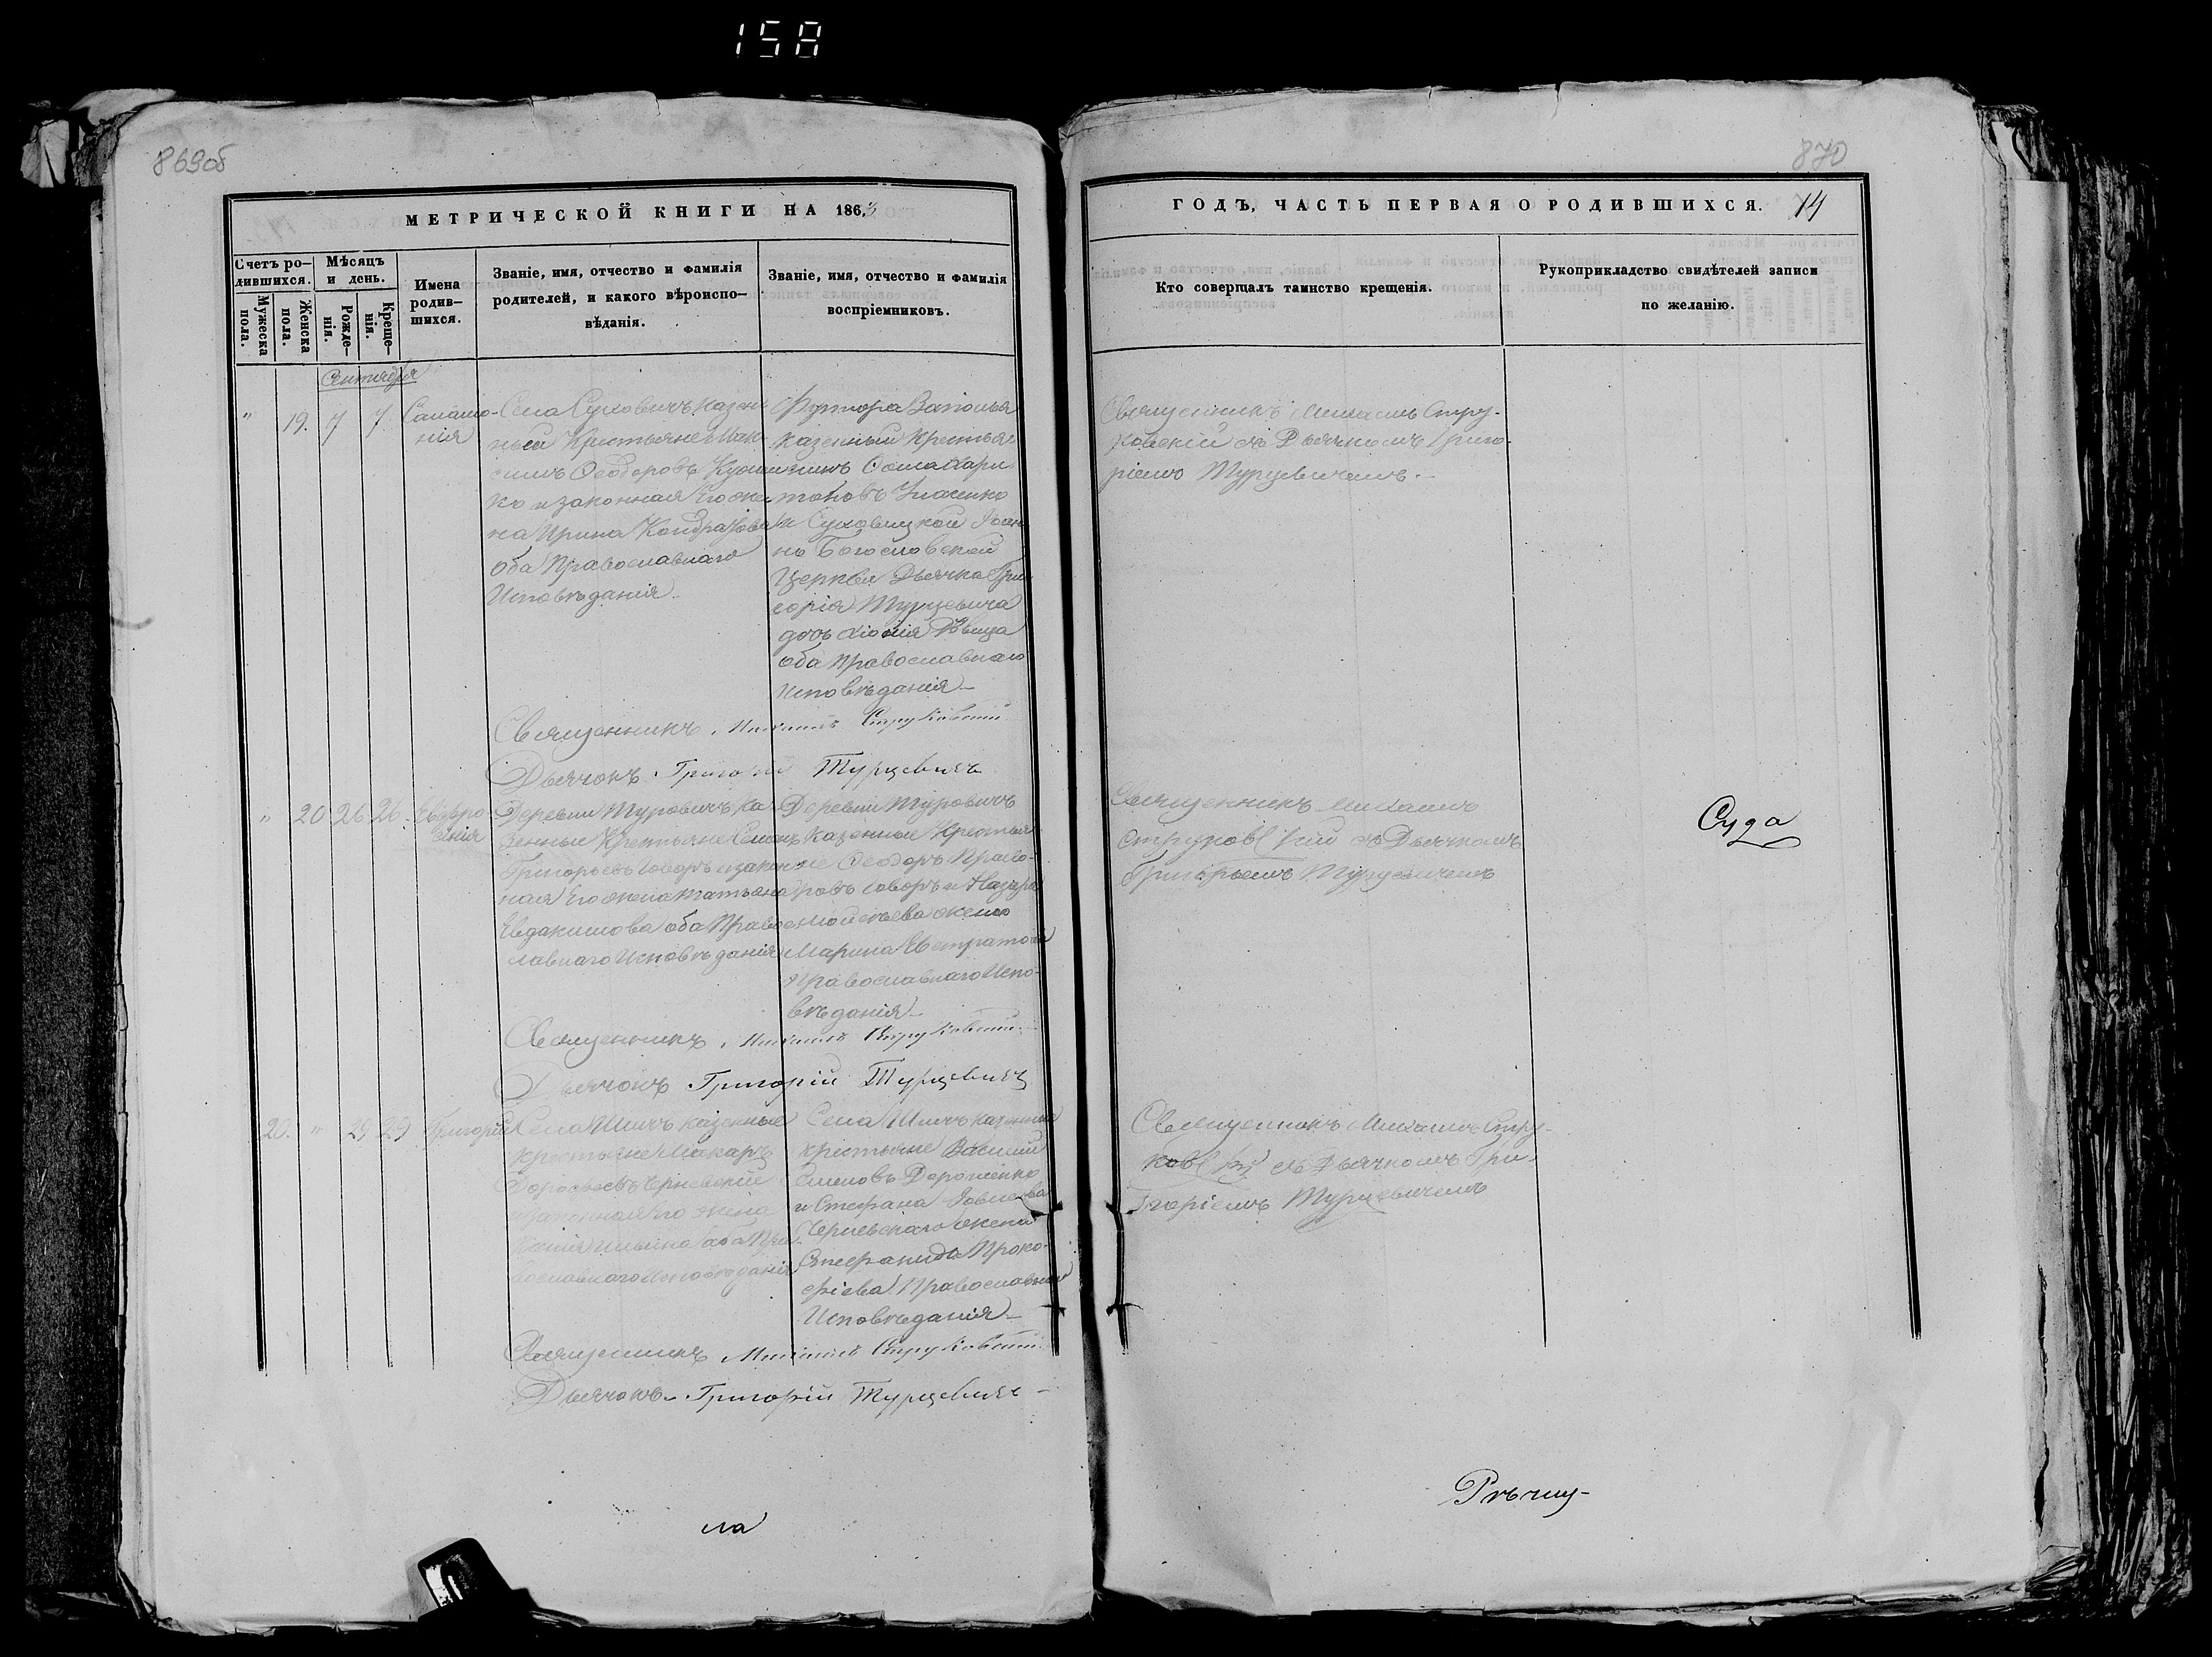 158
869об
МЕТРИЧЕСКОЙ КНИГИ НА 1863
Счетъ ро-
дившихся.
Мужеска
пола.
Женска
пола.
Мѣсяцъ
и день.
Рожде-
нія.
Креще-
нія.
Имена
родив-
шихся.
Званіе, имя, отчество и фамилія
родителей, и какого вѣроиспо-
вѣданія.
Званіе, имя, отчество и фамилія
воспріемниковъ.
Сентября
" 19. 7 7.
Села Суховичъ казен-
ныи Крестьяне Мак-
симъ Ѳеодоровъ
ко и законная Его же-
на Ирина Кондратова
оба Православнаго
Исповѣданія.
казенный крестья-
нинъ Ѳома Хари-
тоновъ
и Суховицкой Іоан-
но Богословской
Церкви Дьячка Гри-
горія Турцевича
дочь Дѣвица
оба православнаго
исповѣданія
Священникъ Михаилъ Струковскій
Дьячокъ Григорій Турцевичъ
" 20 26 26. Евфро-
синія
Деревни Туровичъ Ка-
зенные Крестьяне
Григорьевъ Говоръ и закон-
ная Его жена Татьяна
Евдакимова оба Право-
славнаго Исповѣданія
Деревни Туровичъ
казенные Крестьяне
Ѳеодоръ
ровъ Говоръ и Назара
Моисеева жена
Марина
Православнаго Испо-
вѣданія
Священникъ Михаилъ Струковскій
Дьячокъ Григорій Турцевичъ
20. " 29 29 Григорій
Села Шичъ казенные
крестьяне Макаръ
законная Его жена
оба Пра-
вославнаго Исповѣданія
Села Шичъ казенные
крестьяне Василій
Семеновъ Дорошенко
и Стефана
Черневскаго жена
Стефанида Проко-
фіева Православнаго
Исповѣданія
Священникъ Михаилъ Струковскій
Дьячокъ Григорій Турцевичъ
ла
870
ГОДЪ, ЧАСТЬ ПЕРВАЯ О РОДИВШИХСЯ. 14
Кто совершалъ таинство крещенія.
Рукоприкладство свидѣтелей записи
по желанію.
Священникъ Михаилъ Стру-
ковскій съ Дьячкомъ Григо-
ріемъ Турцевичемъ.
Священникъ Михаилъ
Струковскій съ Дьячкомъ
Григорьемъ Турцевичемъ
Суда
Священникъ Михаилъ Стру-
ковскій съ Дьячкомъ Гри-
горіемъ Турцевичемъ
Рѣчиц-